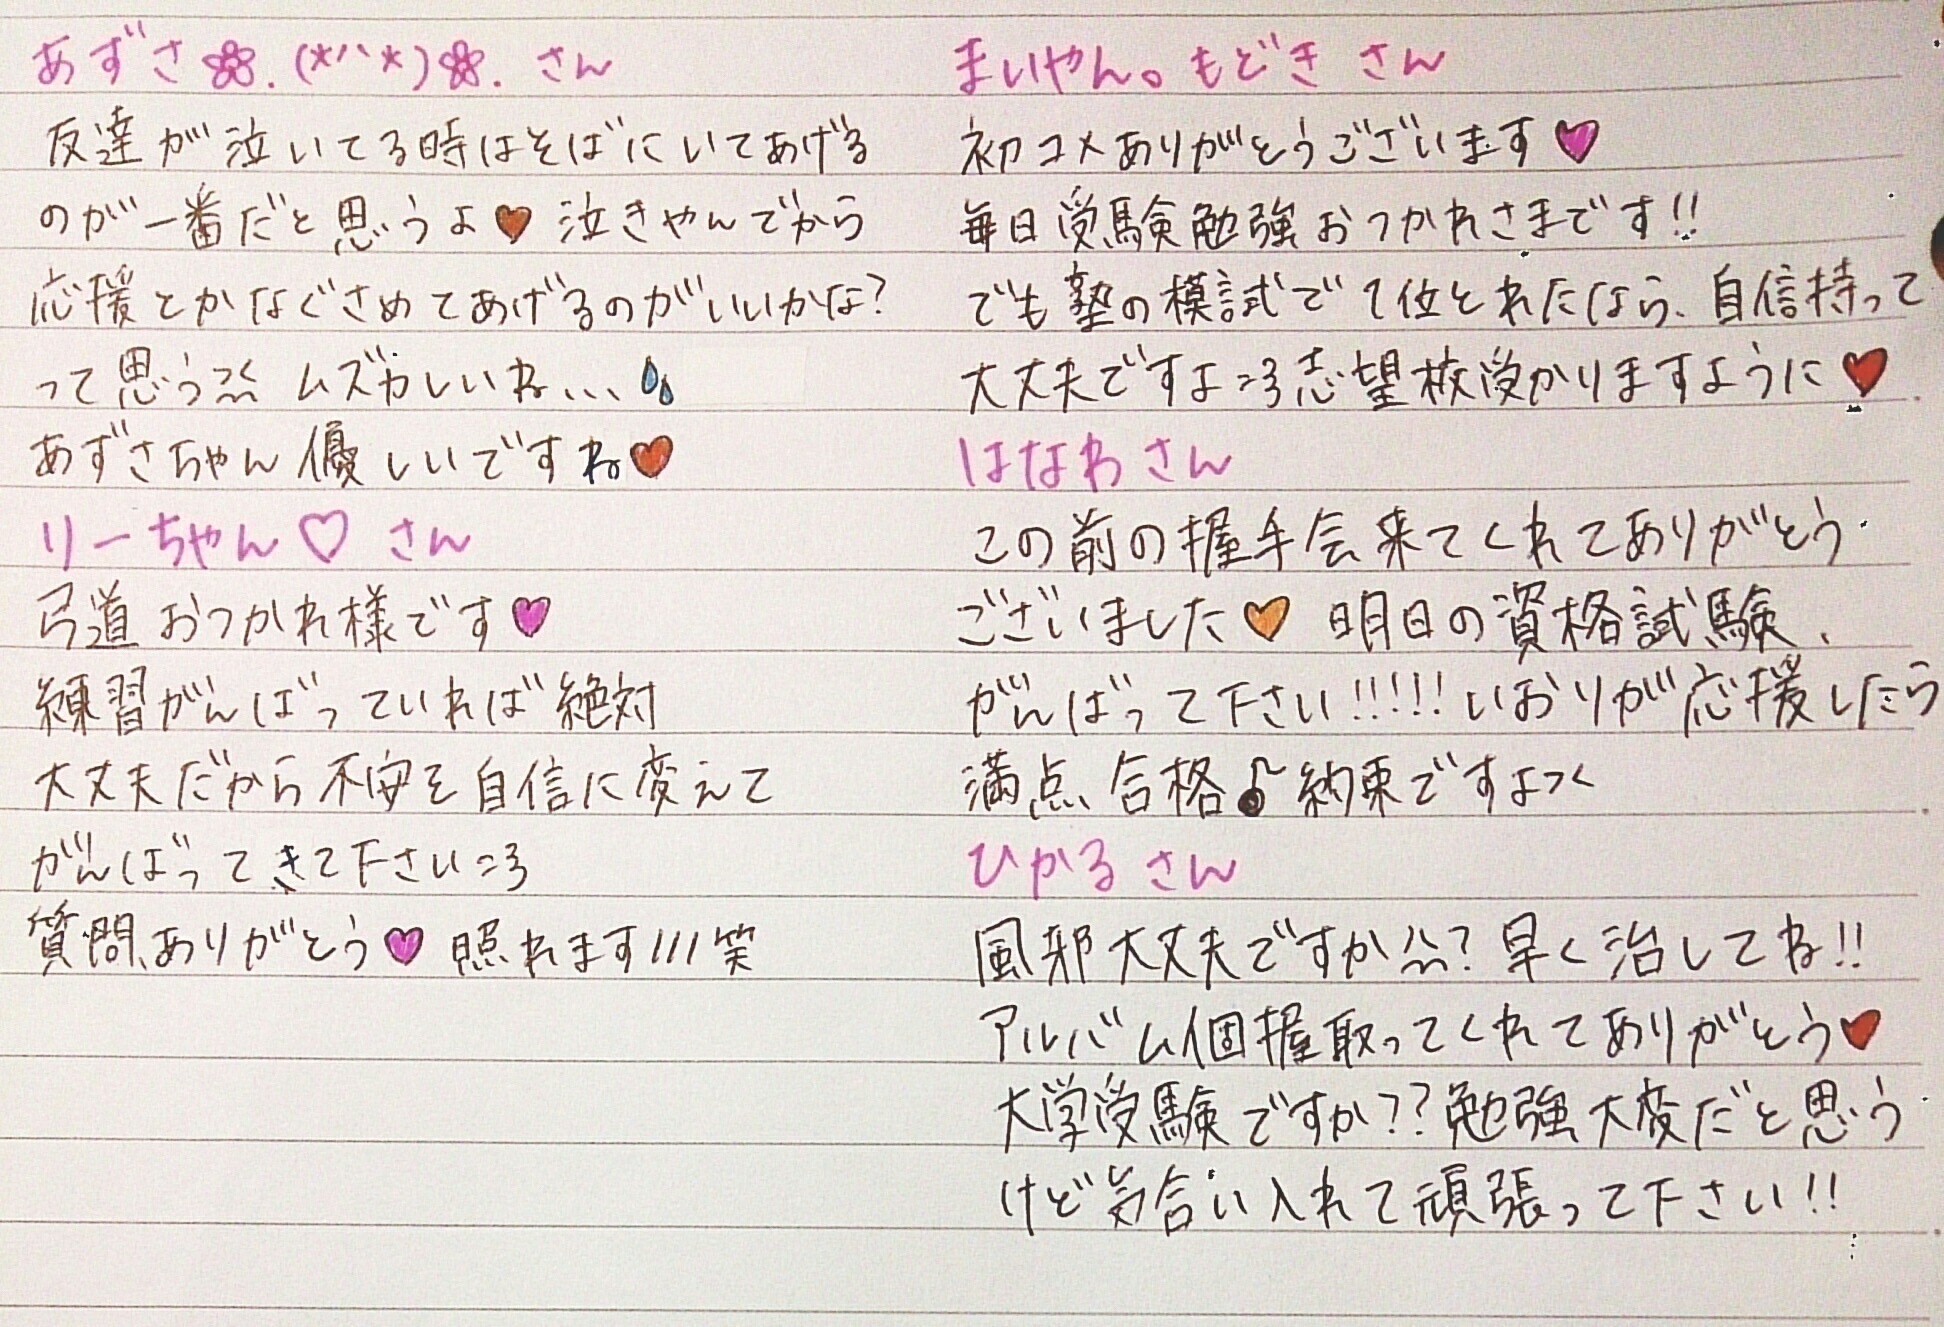 あずさ✿.(*^^*)✿.さん
友達が泣いてる時はそばにいてあげる
のが一番だと思うよ♥泣きやんでから
応援とかなぐさめてあげるのがいいかな?
って思う ムズカしいね、、、
あずさちゃん優しいですね♥
りーちゃん♡さん
弓道おつかれ様です♥
練習がんばっていれば絶対
大丈夫だから不安を自信に変えて
がんばってきて下さい=3
質問ありがとう♥照れます///笑
まいやん。もどきさん
初コメありがとうございます♥
毎日受験勉強おつかれさまです!!
でも塾の模試で1位とれたなら、自信持って
大丈夫ですよ=3志望校受かりますように♥
はなわさん
この前の握手会来てくれてありがとう
ございました♥明日の資格試験、
がんばって下さい!!!!!いおりが応援したら
満点合格♪約束ですよ
ひかるさん
風邪大丈夫ですか?早く治してね!!
アルバム個握取ってくれてありがとう♥
大学受験ですか??勉強大変だと思う
けど気合い入れて頑張って下さい!!